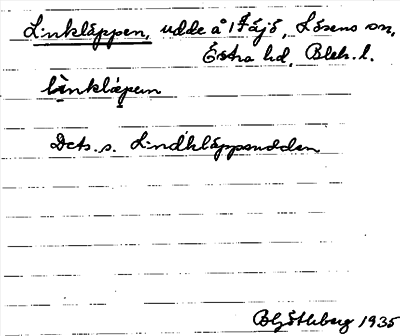 Linkläppen, udde å Fäjö, Lösens sn,
Östra hd, Blek. l.
lìnkläpen
Dets. s. Lindkläppsudden
1935